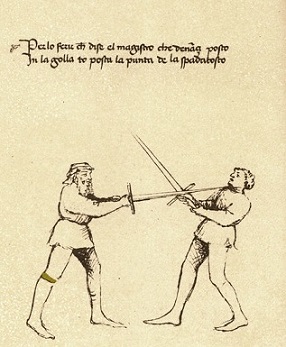 Per lo ferir che dise el magistro che denãçi posto
In la golla to posta la punta de la spada tosto